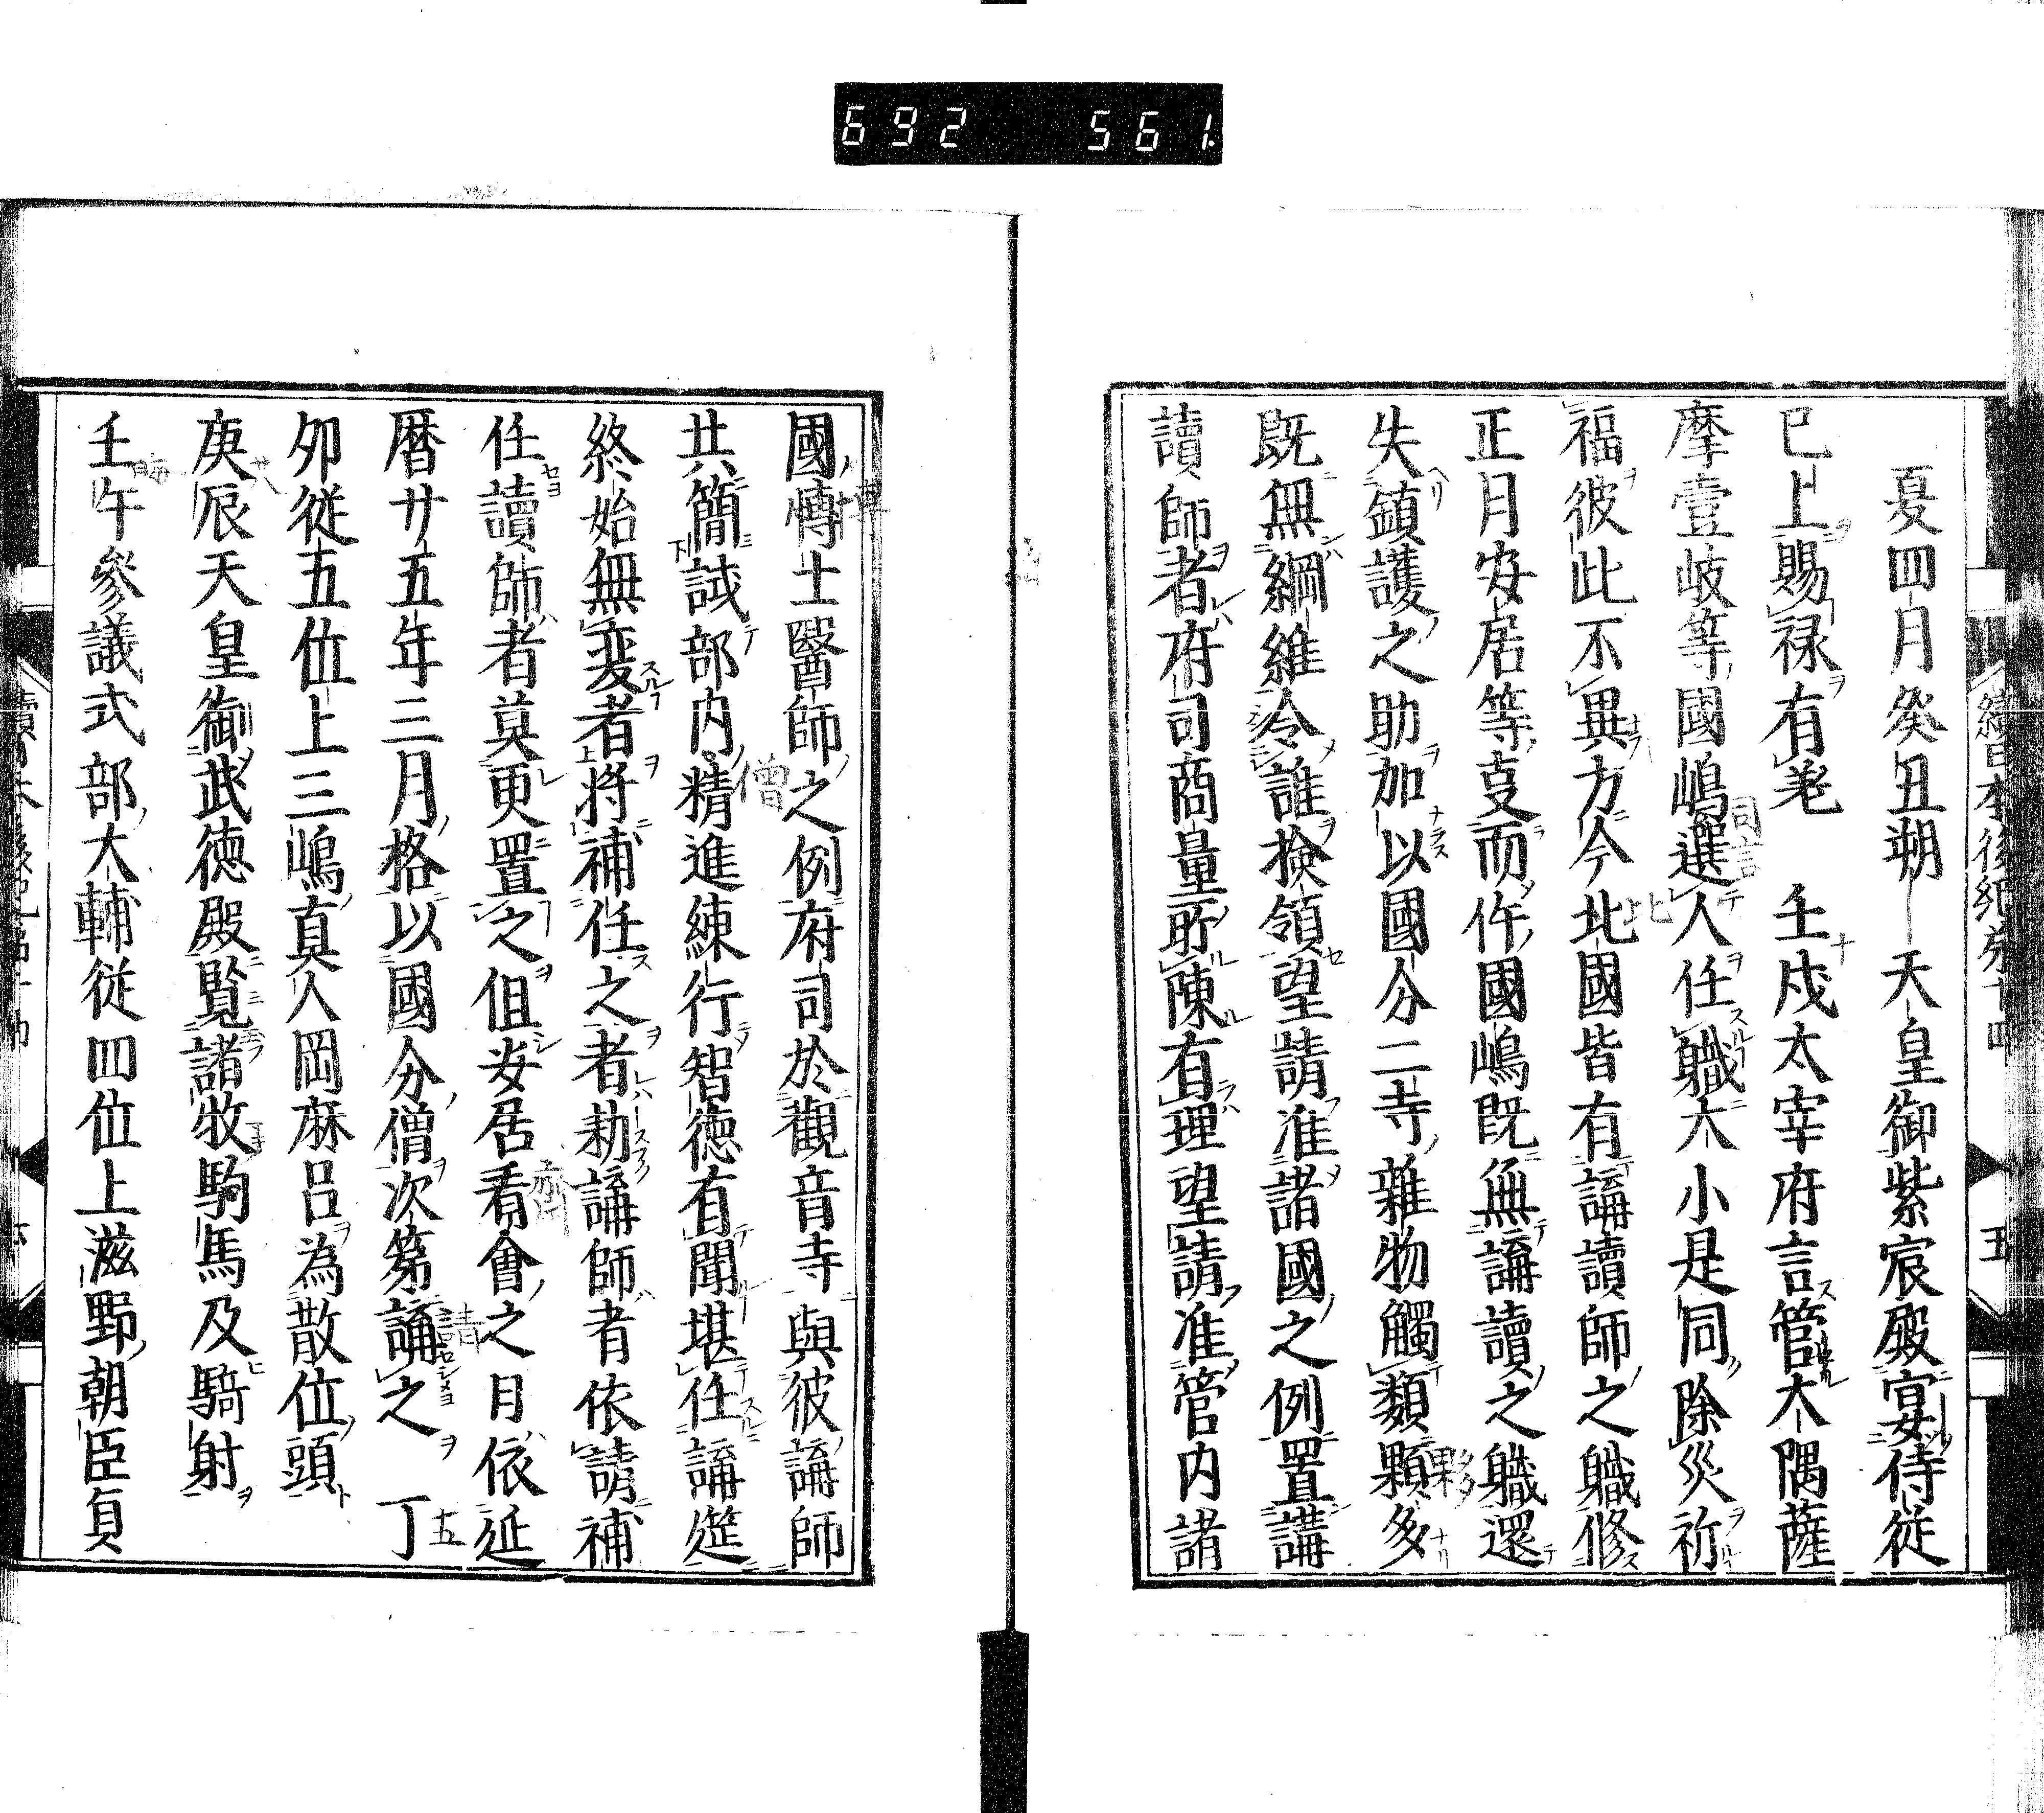 692 561.
夏四月癸丑朔天皇御紫宸殿宴侍従
已上賜禄有差 壬戌太宰府言管大隅薩
摩壹岐等國嶋選人任職大小是同除災祈
福彼此不異方今北國皆有講讀師之職修
正月安居等㕝而件國嶋既無講讀之職還
失鎮護之助加以國分二寺雜物觸類顆多
既無綱維令誰撿領望請准諸國之例置講
讀師者府司商量所陳有理望請准管内諸
國博士醫師之例府司於觀音寺與彼講師
共簡試部内精進練行智徳有聞堪任講莚
終始無変者將補任之者勅講師者依請補
任讀師者莫更置之但安居看會之月依延
暦廿五年三月格以國分僧次第講之 丁
夘従五位上三嶋真人岡麻呂為散位頭
庚辰天皇御武徳殿覧諸牧駒馬及騎射
壬午參議式部大輔従四位上滋野朝臣貞